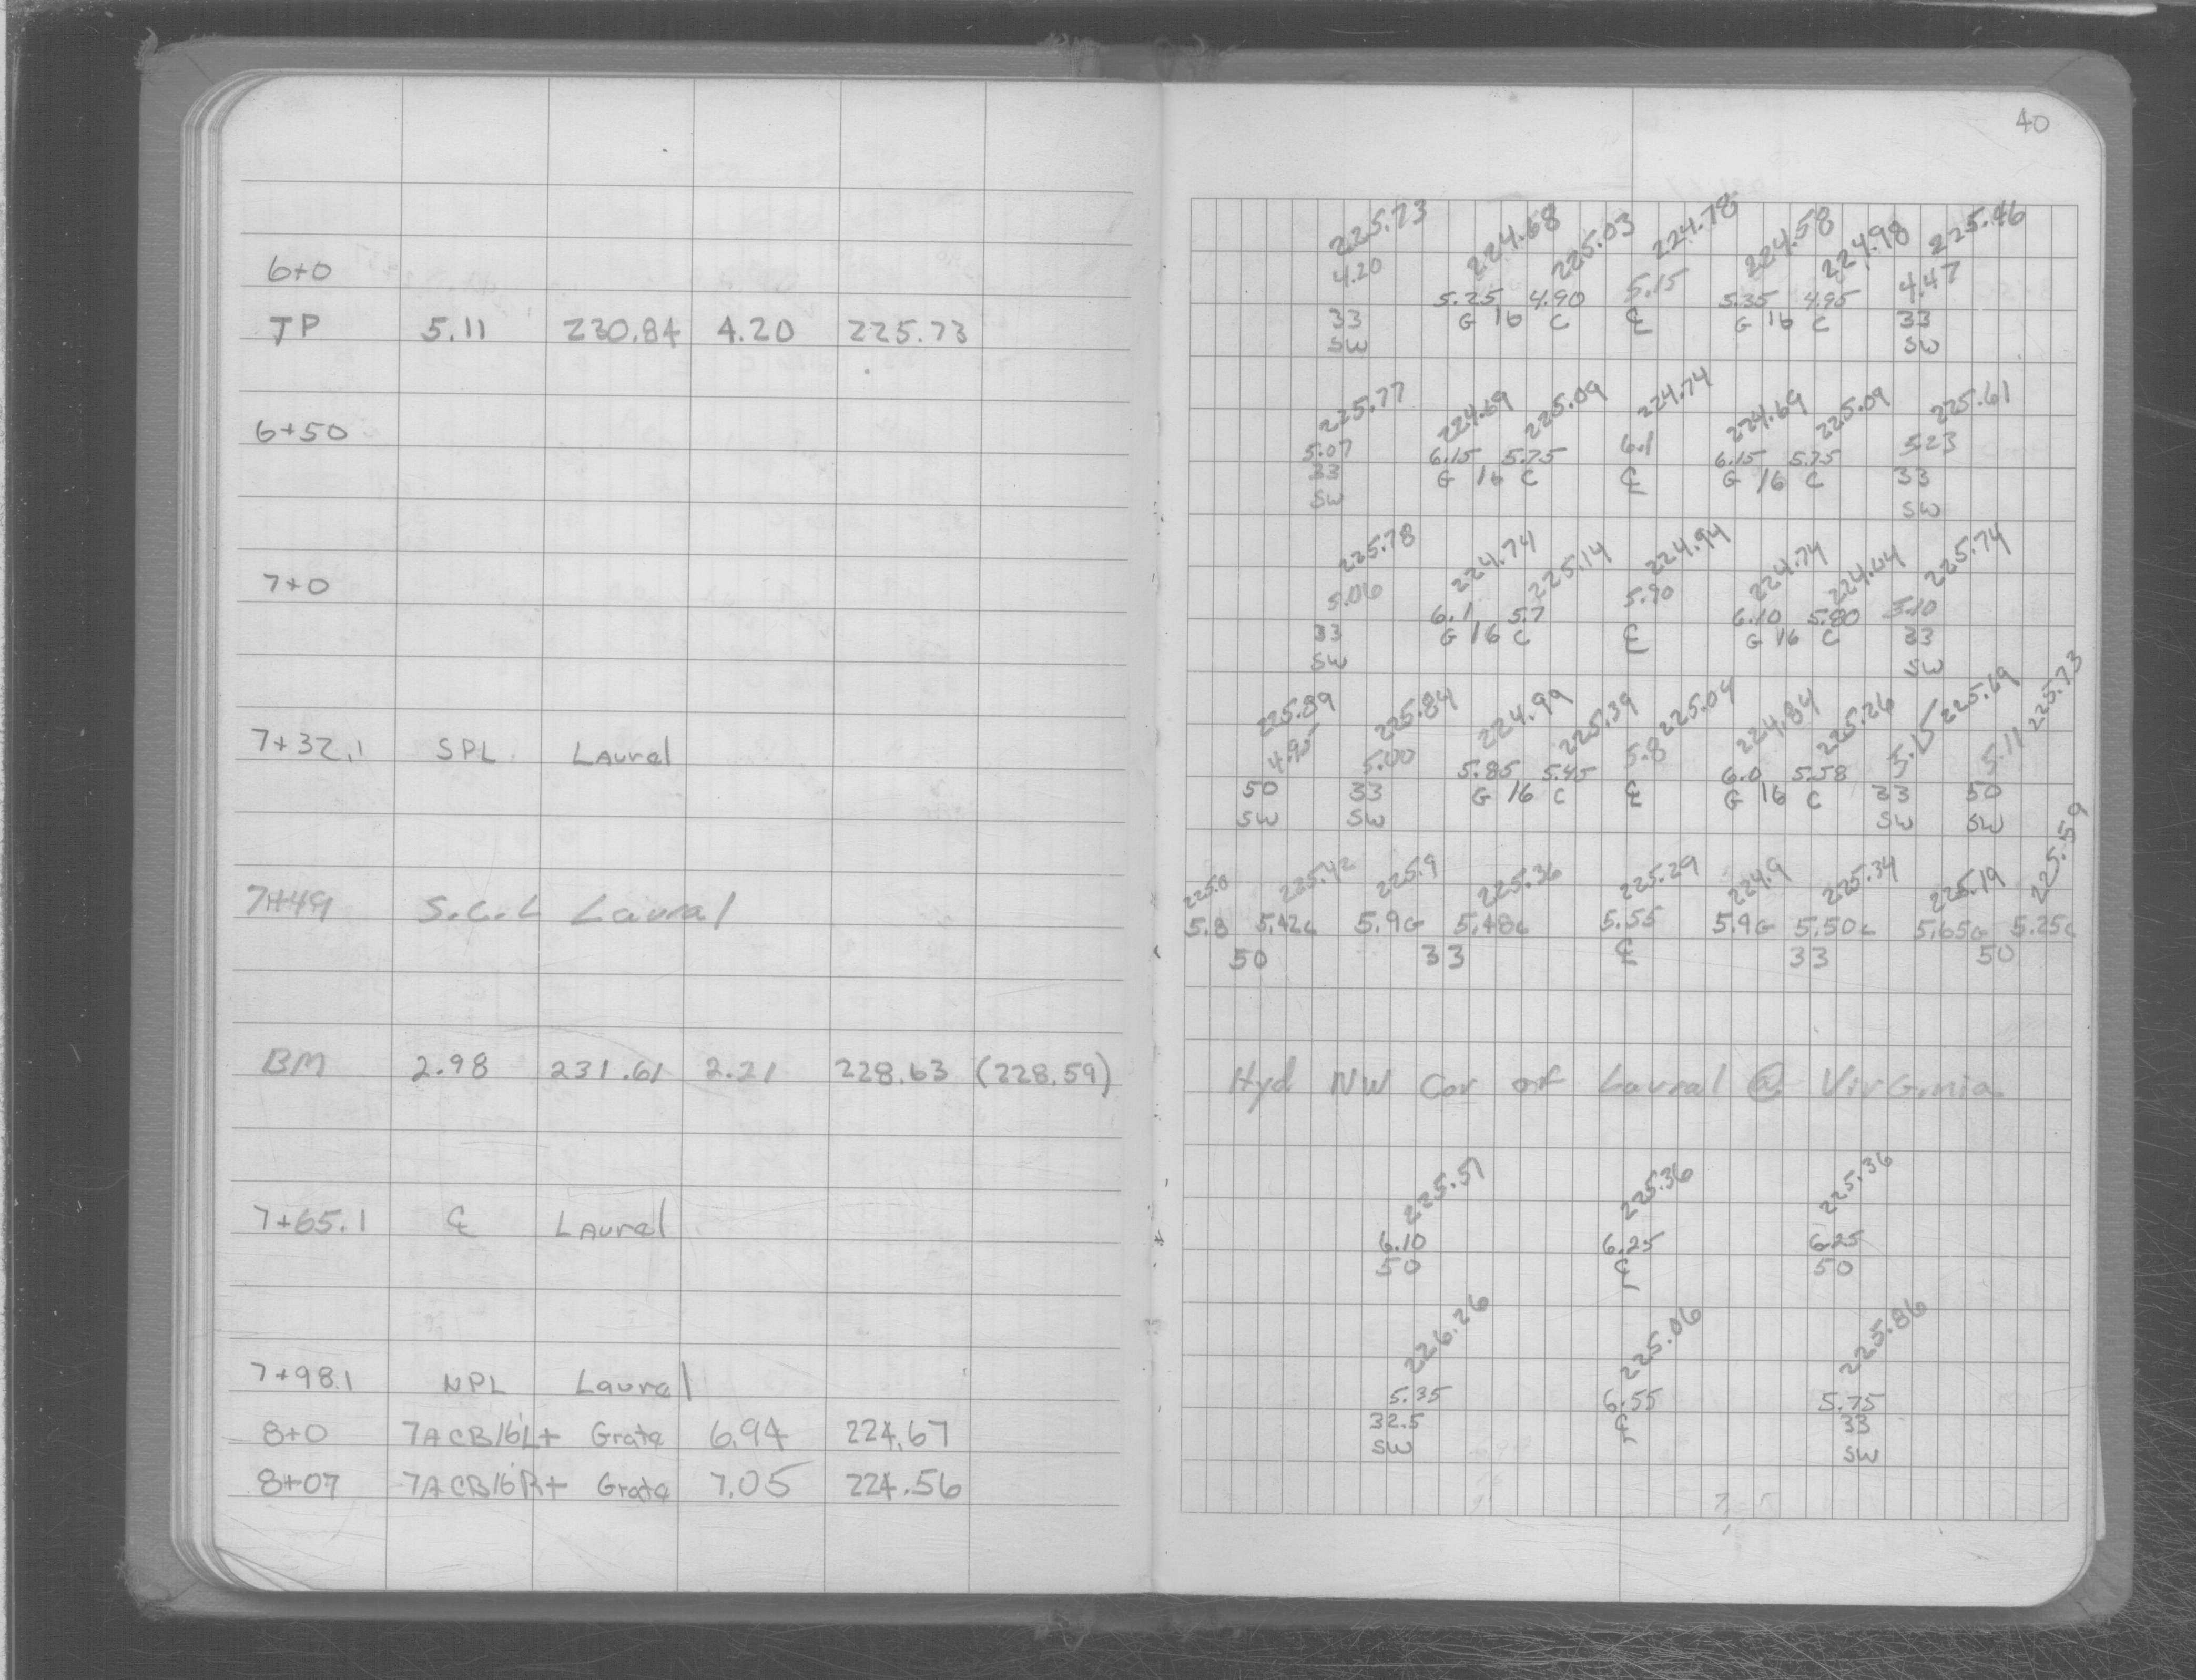 6+0
TP 5.11 230.84 4.20 225.73
6+50
7+0
7+32.1 SPL Laurel
7+49 S.C.L Laural
BM 2.98 231.61 2.21 228.63 (228.59)
7+65.1 ℄ Laurel
7+98.1 NPL Laurel
8+0 7ACB16'L+ Grate 6.94 224.67
8+07 7ACB16'R+ Grate 7.05 224.56
40
225.73 224.68 225.03 224.78 224.58 224.98 225.46
4.20 5.25 4.90 5.15 5.35 4.95 4.47
33 G 16 C ℄ G 16 C 33
SW SW
225.77 224.69 225.09 224.74 224.69 225.09 225.61
5.07 6.15 5.75 6.1 6.15 5.75 5.23
33 G 16 C ℄ G 16 C 33
SW SW
225.78 224.74 225.14 224.94 224.74 225.74
5.06 6.1 5.7 5.90 6.10 5.80 5.10
33 G 16 C ℄ G 16 C 33
SW SW
225.89 225.84 224.99 225.39 225.04 224.84 225.26 225.69 225.73
4.95 5.00 5.85 5.45 5.8 6.0 5.58 5.15 5.11
50 33 G 16 C ℄ G 16 C 33 50
SW SW SW SW
225.0 225.42 225.9 225.36 225.29 224.9 225.34 225.19 225.59
5.8 5.42c 5.9G 5.48c 5.55 5.9G 5.50c 5.65G 5.25c
50 33 ℄ 33 50
Hyd NW Cor of Laural @ VirGinia
225.51 225.36 225.36
6.10 6.25 6.25
50 ℄ 50
226.26 225.06 225.86
5.35 6.55 5.75
32.5 ℄ 33
SW SW